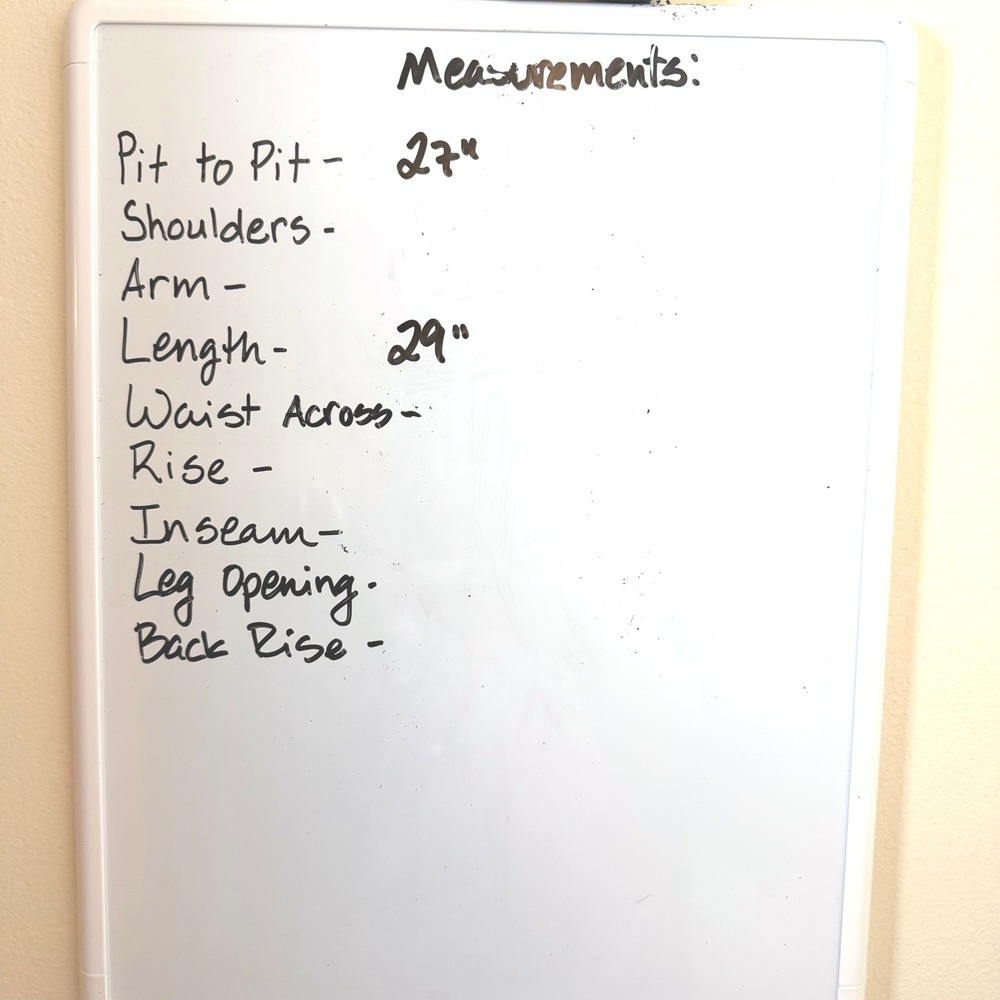 Measurements:
Pit to Pit - 27"
Shoulders -
Arm -
Length - 29"
Waist Across -
Rise -
Inseam -
Leg Opening -
Back Rise -